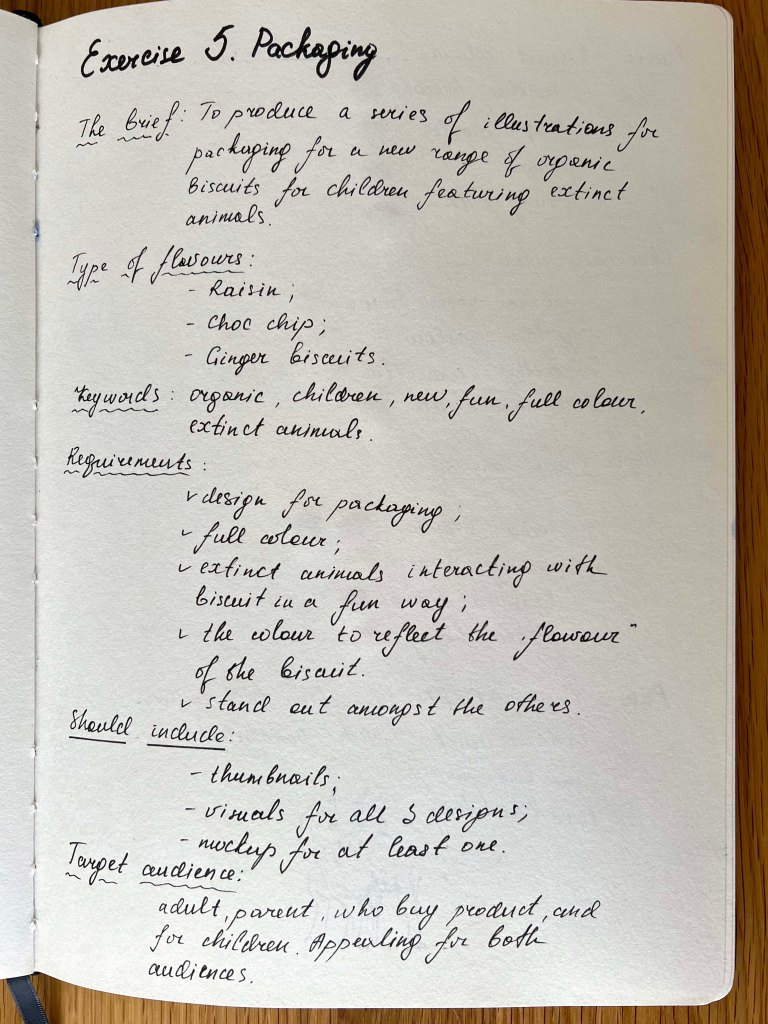 Exercise 5. Packaging
The brief: To produce a series of illustrations for
packaging for a new range of organic
biscuits for children featuring extinct
animals.
Type of flavours:
- Raisin;
- Choc chip;
- Ginger biscuits.
Keywords: organic, children, new, fun, full colour,
extinct animals.
Requirements:
✓ design for packaging;
✓ full colour;
✓ extinct animals interacting with
biscuit in a fun way;
✓ the colour to reflect the „flavour"
of the biscuit.
✓ stand out amongst the others.
Should include:
- thumbnails;
- visuals for all 3 designs;
- mockup for at least one.
Target audience:
adult, parent, who buy product, and
for children. Appealing for both
audiences.